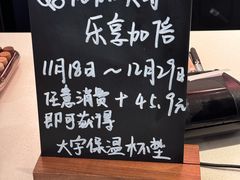 乐享加倍
11月18日～12月29日
任意消费+45.9元
即可获得
大字保温杯垫